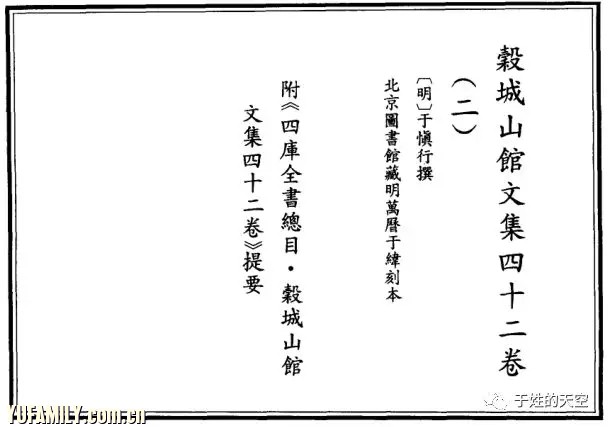 穀城山館文集四十二卷
（二）
〔明〕于慎行撰
北京圖書館藏明萬曆于緯刻本
附《四庫全書總目·穀城山館
文集四十二卷》提要
于姓的天空
YUFAMILY.com.cn